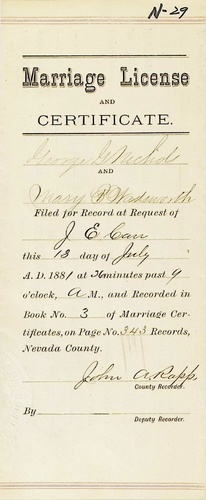 N-29
Marriage License
AND
CERTIFICATE.
George G Nichols
AND
Mary P Wadsworth
Filed for Record at Request of
J E Carr
this 13 day of July
A. D. 1881 at 36 minutes past 9
o'clock, A M., and Recorded in
Book No. 3 of Marriage Cer-
tificates, on Page No. 343 Records,
Nevada County.
John A. Rapp
County Recorder.
By
Deputy Recorder.